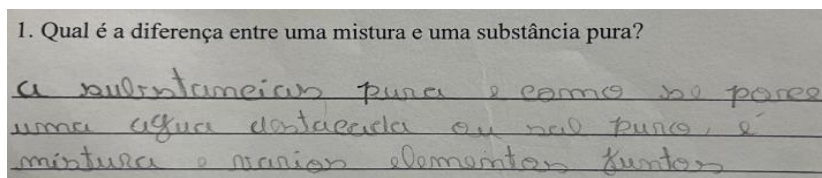 1. Qual é a diferença entre uma mistura e uma substância pura?
a substancias pura e como se fosse
uma agua destacada ou sal puro, e
mistura e varios elementos juntos